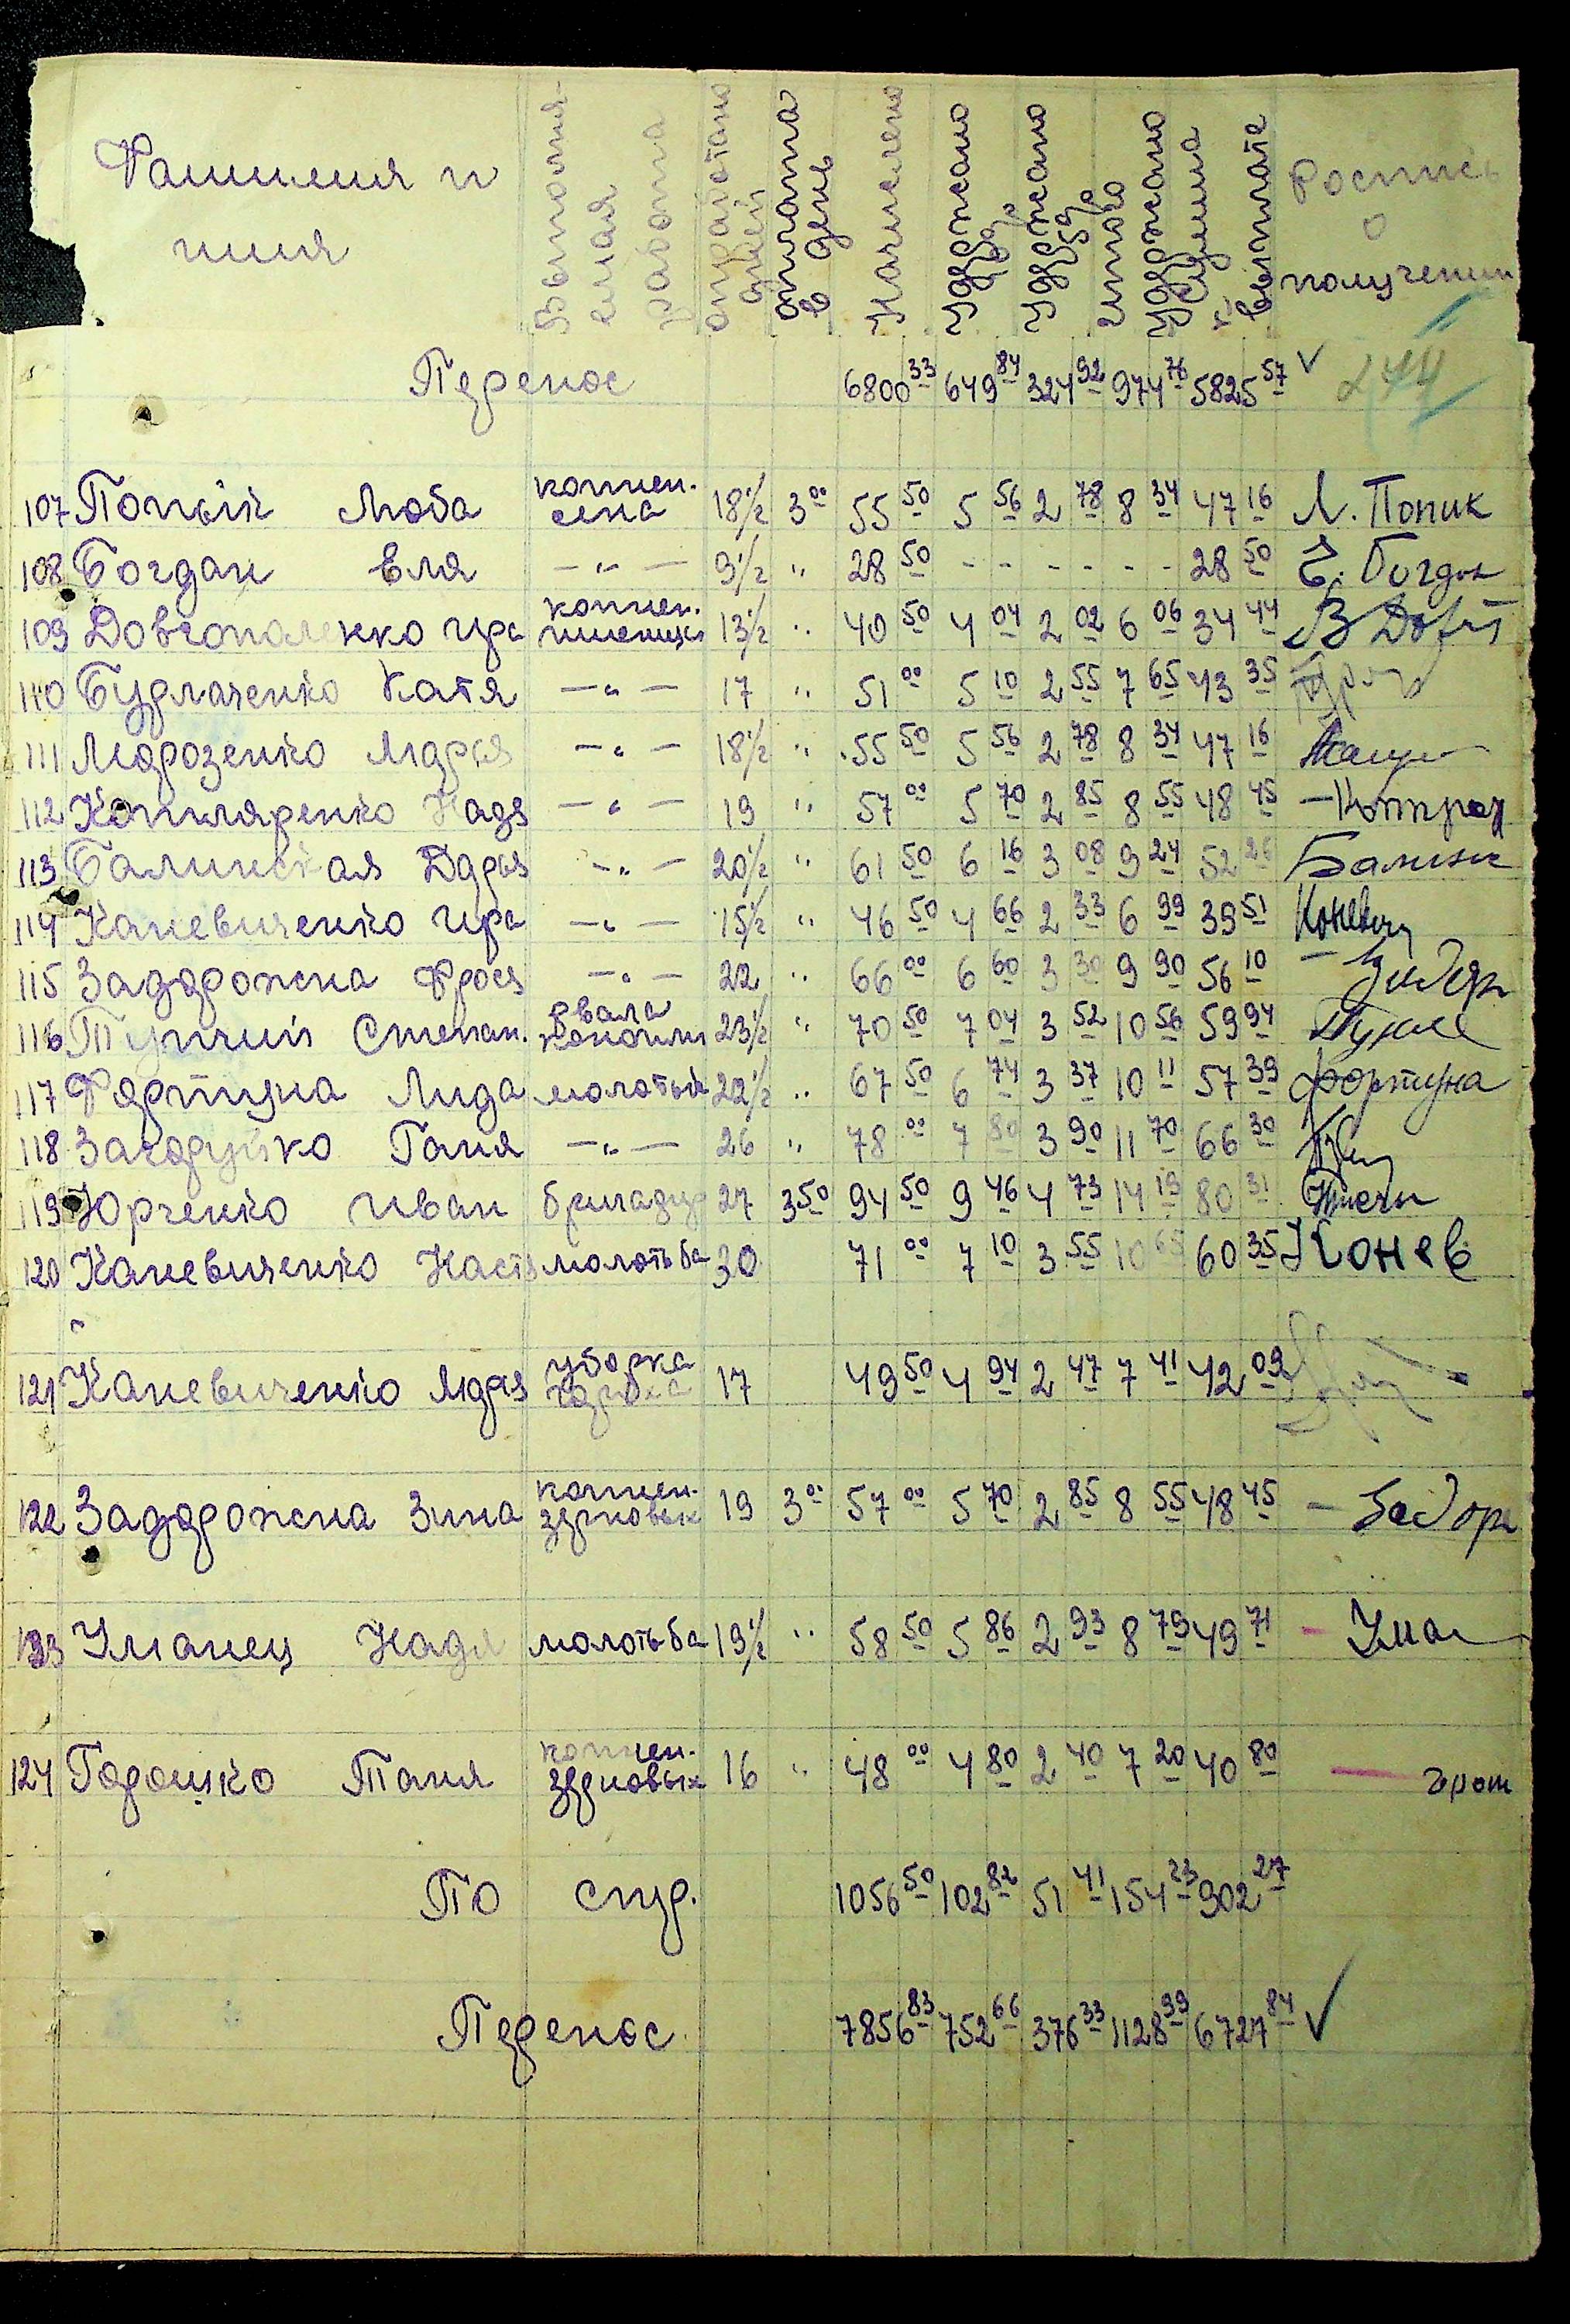 Фамилия и имя
Выполняемая работа
отработано дней
оплата в день
Начислено
Удержано 10%
Удержано 5%
итого удержано
Сумма к выплате
Роспись о получении
Перенос 6800 33 649 84 324 92 974 76 5825 57 ✓ 244
107 Попый Люба копнен. сена 18½ 3 00 55 50 5 56 2 78 8 34 47 16 Л. Попик
108 Богдан Еля –"– 9½ " 28 50 - - - - - - - 28 50 Е. Богдан
109 Довгополенко Ира копнен. пшеницы 13½ " 40 50 4 04 2 02 6 06 34 44
110 Бурлаченко Катя –"– 17 " 51 00 5 10 2 55 7 65 43 35
111 Морозенко Мария –"– 18½ " 55 50 5 56 2 78 8 34 47 16
112 Котляренко Надя –"– 19 " 57 00 5 70 2 85 8 55 48 45
113 Балинская Дарья –"– 20½ " 61 50 6 16 3 08 9 24 52 26 Балинс
114 Каневиченко Ира –"– 15½ " 46 50 4 66 2 33 6 99 39 51 Коневич
115 Задорожна Фрося –"– 22 " 66 00 6 60 3 30 9 90 56 10
116 Тупчий Степан. рвала конопли 23½ " 70 50 7 04 3 52 10 56 59 94
117 Фартуна Лида молотьба 22½ " 67 50 6 74 3 37 10 11 57 39 фортуна
118 Загодуйко Ганя –"– 26 " 78 00 7 80 3 90 11 70 66 30
119 Юрченко Иван бригадир 27 3 50 94 50 9 46 4 73 14 19 80 31
120 Каневиченко Настя молотьба 30 71 00 7 10 3 55 10 65 60 35 Конев
121 Каневиченко Мария уборка гороха 17 49 50 4 94 2 47 7 41 42 09
122 Задорожна Зина копнен. зерновых 19 3 00 57 00 5 70 2 85 8 55 48 45 – Задорж
123 Уманец Надя молотьба 19½ " 58 50 5 86 2 93 8 79 49 71 – Ума
124 Горошко Таня копнен. зерновых 16 " 48 00 4 80 2 40 7 20 40 80
По стр. 1056 50 102 82 51 41 154 23 902 27
Перенос 7856 83 752 66 376 33 1128 99 6727 84 ✓